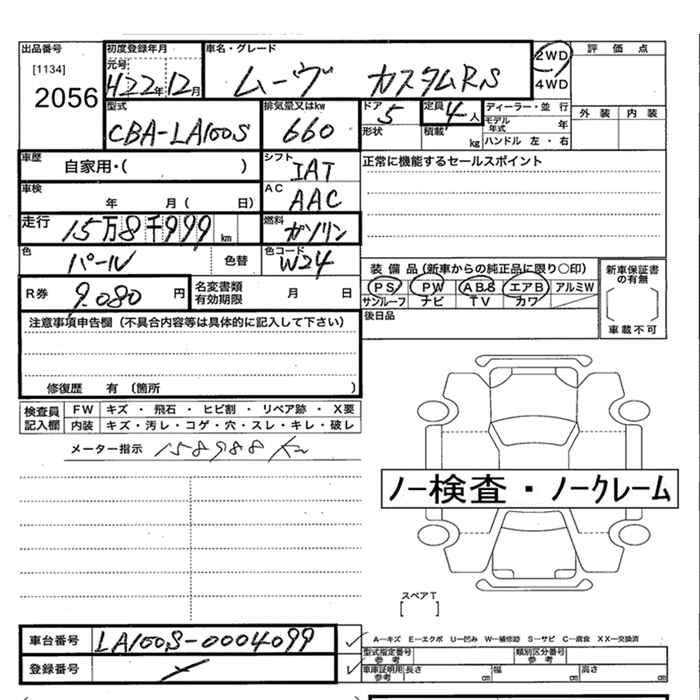 出品番号 初度登録年月 車名・グレード 2WD 評価点
[1134] 元号 H22年12月 ムーヴ カスタムRS 4WD
2056 型式 排気量又はkw ドア 5 定員 4人 ディーラー・並行 外装 内装
CBA-LA100S 660 形状 積載 kg モデル年式 年
ハンドル 左・右
車歴 自家用・( ) シフト IAT 正常に機能するセールスポイント
車検 年 月( 日) AC AAC
走行 15万8千999km 燃料 ガソリン
色 パール 色替 色コード W24 装備品(新車からの純正品に限り○印) 新車保証書の有無
PS PW ABS エアB アルミW
R券 9.080円 名変書類有効期限 月 日 サンルーフ ナビ TV カワ 車載不可
注意事項申告欄(不具合内容等は具体的に記入して下さい) 後日品
修復歴 有 (箇所 )
検査員記入欄 FW キズ・飛石・ヒビ割・リペア跡・X要
内装 キズ・汚レ・コゲ・穴・スレ・キレ・破レ
メーター指示 158988Km
ノー検査・ノークレーム
スペアT
[ ]
車台番号 LA100S-0004099 A−キズ E−エクボ U−凹み W−補修跡 S−サビ C−腐食 XX−交換済
型式指定番号 参考 類別区分番号 参考
登録番号 車庫証明用参考 長さ cm 幅 cm 高さ cm